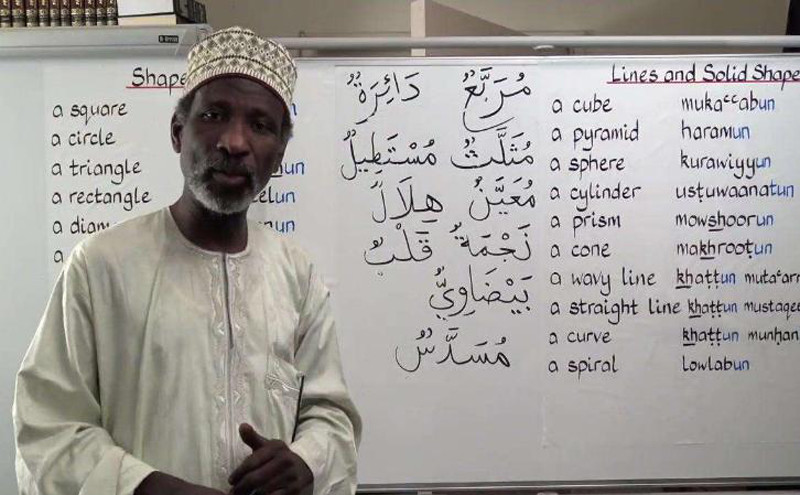 Shape
a square
a circle
a triangle
un
a rectangle
elun
a diam
nun
a
مُرَبَّعٌ دَائِرَةٌ
مُثَلَّثٌ مُسْتَطِيلٌ
مُعَيَّنٌ هِلَالٌ
نَجْمَةٌ قَلْبٌ
بَيْضَاوِيٌّ
مُسَدَّسٌ
Lines and Solid Shape
a cube mukaᶜᶜabun
a pyramid haramun
a sphere kurawiyyun
a cylinder usṭuwaanatun
a prism mowshoorun
a cone makhrooṭun
a wavy line khaṭṭun mutaᶜarr
a straight line khaṭṭun mustaqee
a curve khaṭṭun munḥan
a spiral lowlabun